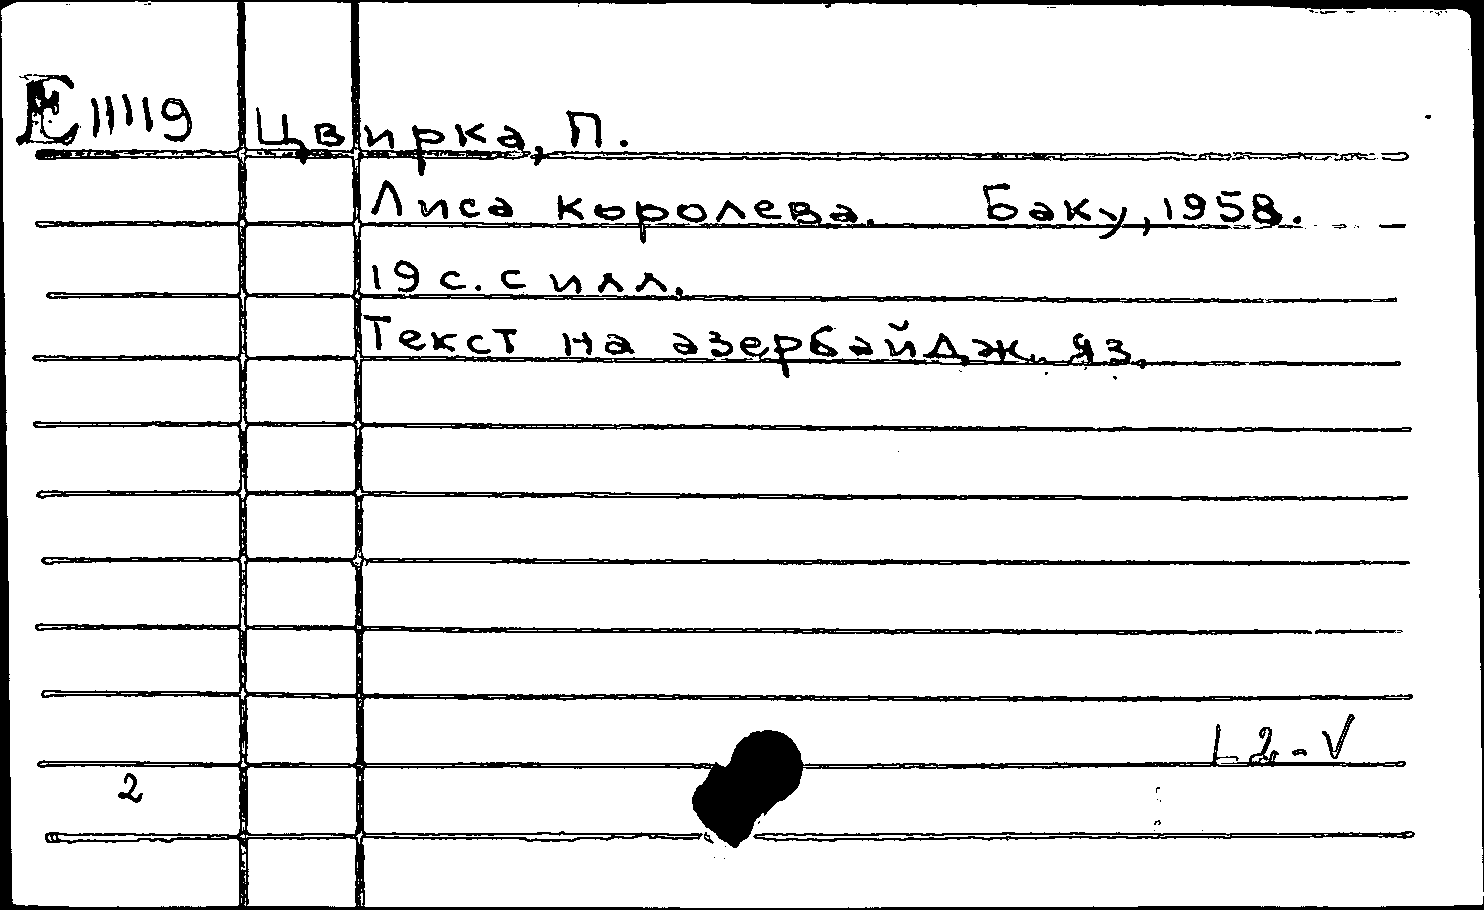 E11119 Цвирка, П.
Лиса королева. Баку, 1958.
19 с. с илл.
Текст на азербайдж. яз.
L2-V
2